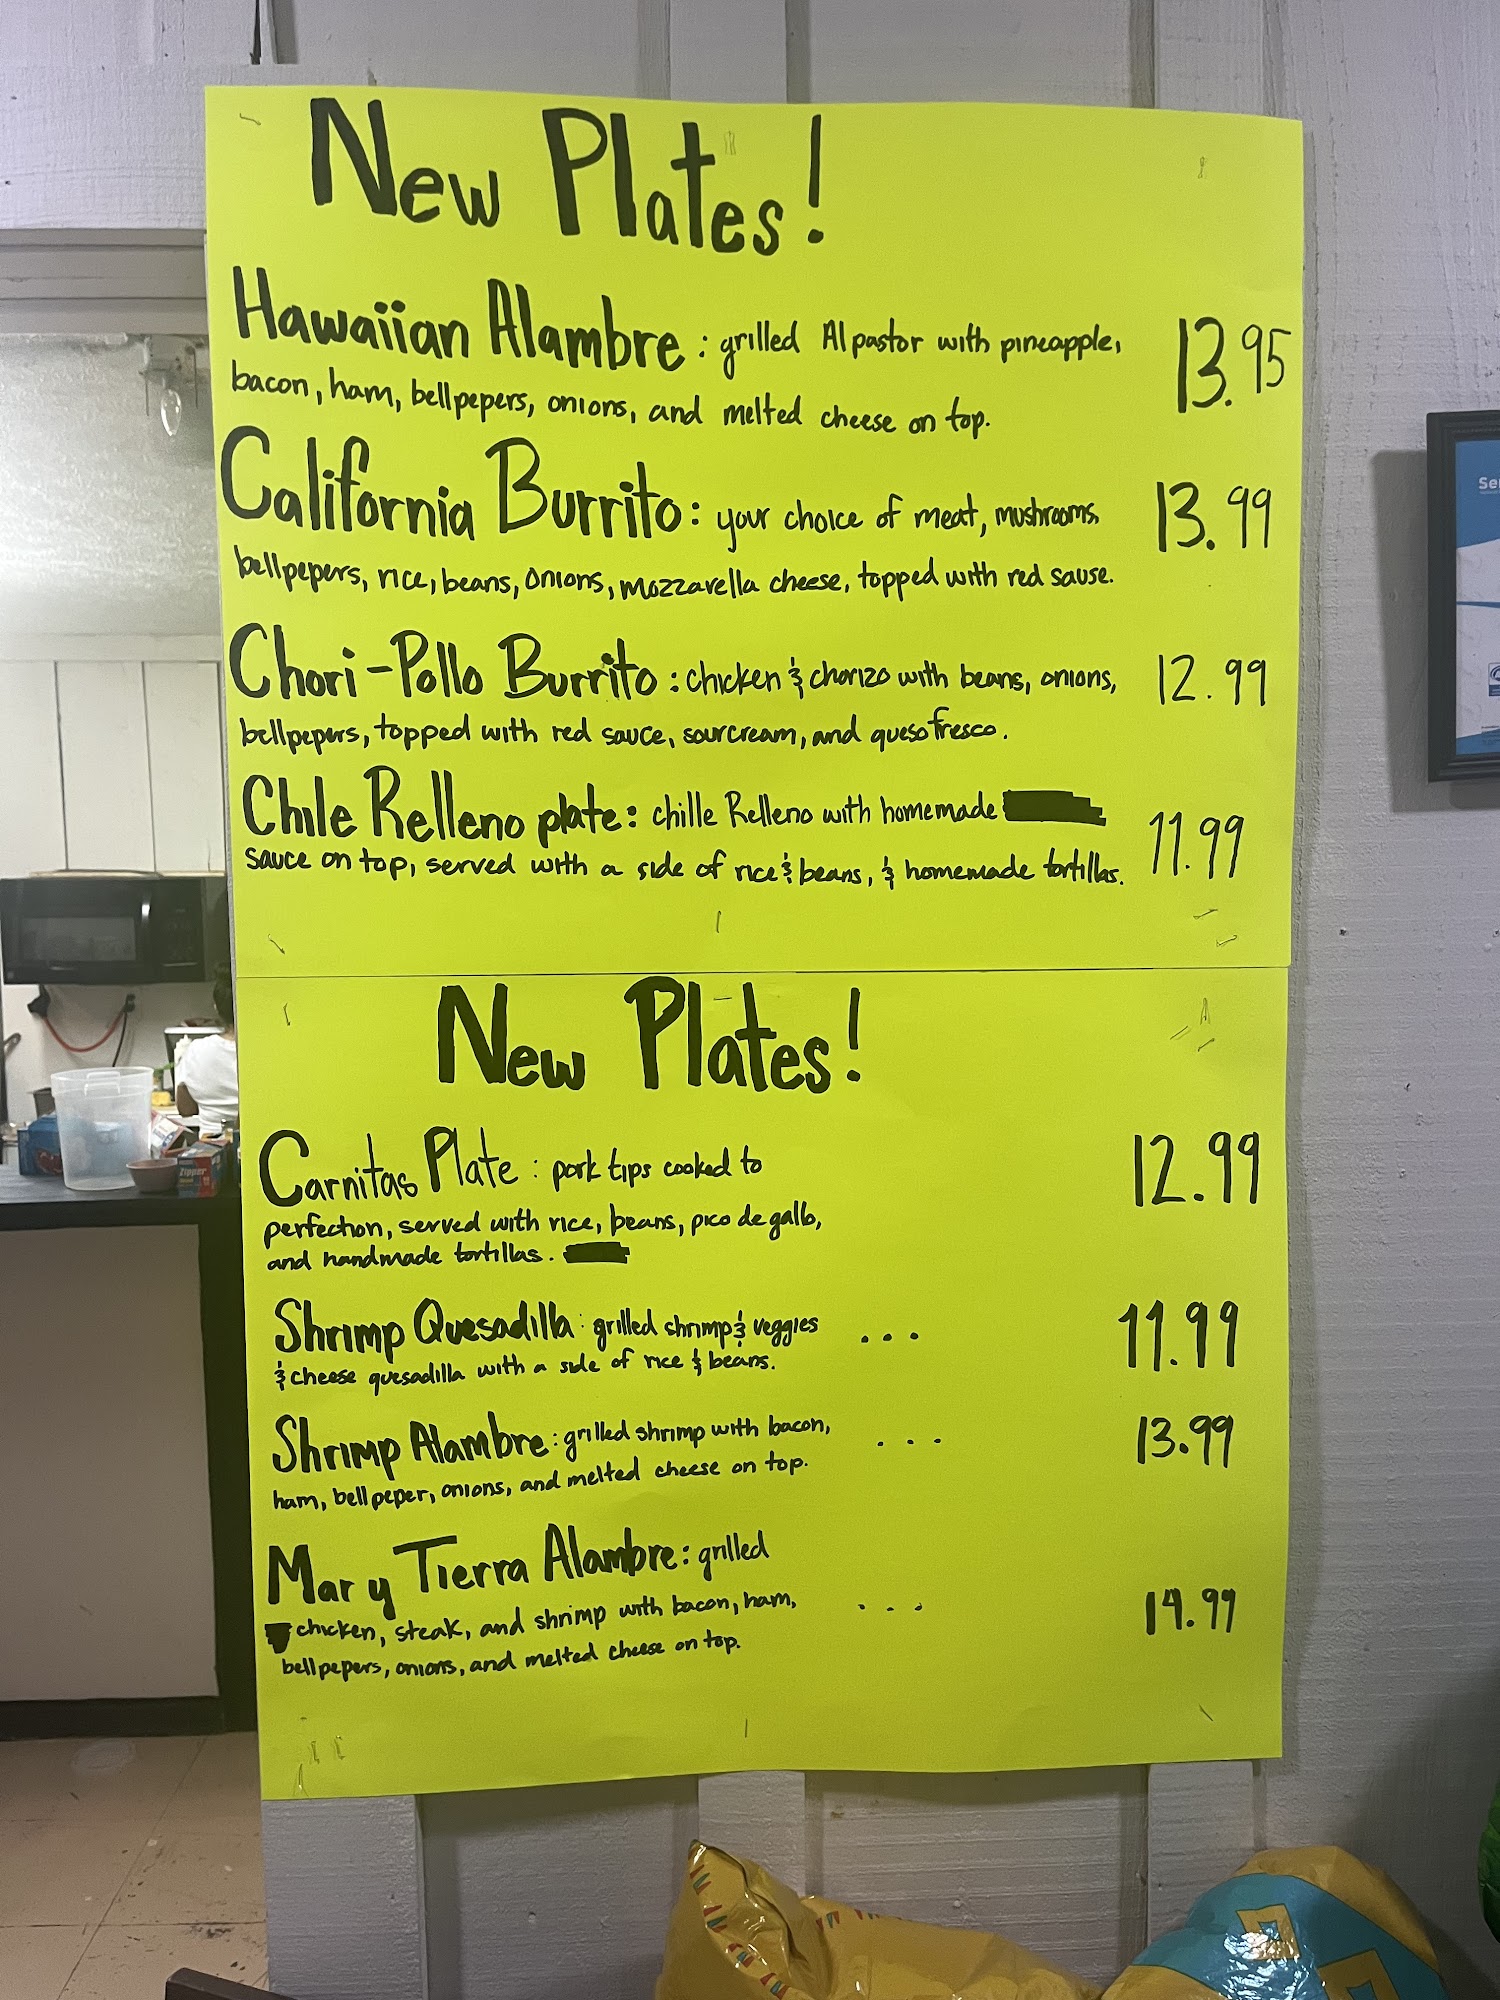 New Plates!
Hawaiian Alambre: grilled Al pastor with pineapple, 13.95
bacon, ham, bellpepers, onions, and melted cheese on top.
California Burrito: your choice of meat, mushrooms, 13.99
bellpepers, rice, beans, onions, mozzarella cheese, topped with red sause.
Chori-Pollo Burrito: chicken & chorizo with beans, onions, 12.99
bellpepers, topped with red sauce, sourcream, and queso fresco.
Chile Relleno plate: chille Relleno with homemade 11.99
sauce on top, served with a side of rice & beans, & homemade tortillas.
New Plates!
Carnitas Plate: pork tips cooked to 12.99
perfection, served with rice, beans, pico de gallo,
and handmade tortillas.
Shrimp Quesadilla: grilled shrimp & veggies ... 11.99
& cheese quesadilla with a side of rice & beans.
Shrimp Alambre: grilled shrimp with bacon, ... 13.99
ham, bell peper, onions, and melted cheese on top.
Mar y Tierra Alambre: grilled
chicken, steak, and shrimp with bacon, ham, ... 14.99
bellpepers, onions, and melted cheese on top.
Zipper
Ser